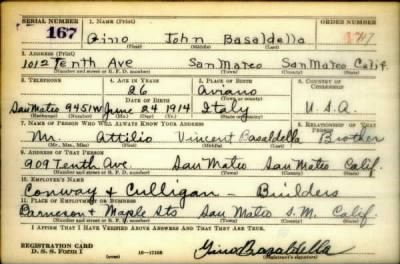 SERIAL NUMBER 1. NAME (Print) ORDER NUMBER
167 Gino John Basaldella
(First) (Middle) (Last)
2. ADDRESS (Print)
1012 Tenth Ave San Mateo San Mateo Calif.
(Number and street or R. F. D. number) (Town) (County) (State)
3. TELEPHONE 4. AGE IN YEARS 5. PLACE OF BIRTH 6. COUNTRY OF CITIZENSHIP
26 Aviano
DATE OF BIRTH (Town or county)
San Mateo 9451W June 24 1914 Italy U.S.A.
(Exchange) (Number) (Mo.) (Day) (Yr.) (State or country)
7. NAME OF PERSON WHO WILL ALWAYS KNOW YOUR ADDRESS 8. RELATIONSHIP OF THAT PERSON
Mr. Attilio Vincent Basaldella Brother
(Mr., Mrs., Miss) (First) (Middle) (Last)
9. ADDRESS OF THAT PERSON
909 Tenth Ave. San Mateo San Mateo Calif.
(Number and street or R. F. D. number) (Town) (County) (State)
10. EMPLOYER'S NAME
Conway & Culligan - Builders
11. PLACE OF EMPLOYMENT OR BUSINESS
& Maple Sts San Mateo S.M. Calif.
(Number and street or R. F. D. number) (Town) (County) (State)
I AFFIRM THAT I HAVE VERIFIED ABOVE ANSWERS AND THAT THEY ARE TRUE.
REGISTRATION CARD
D. S. S. FORM 1 (over) Gino Basaldella